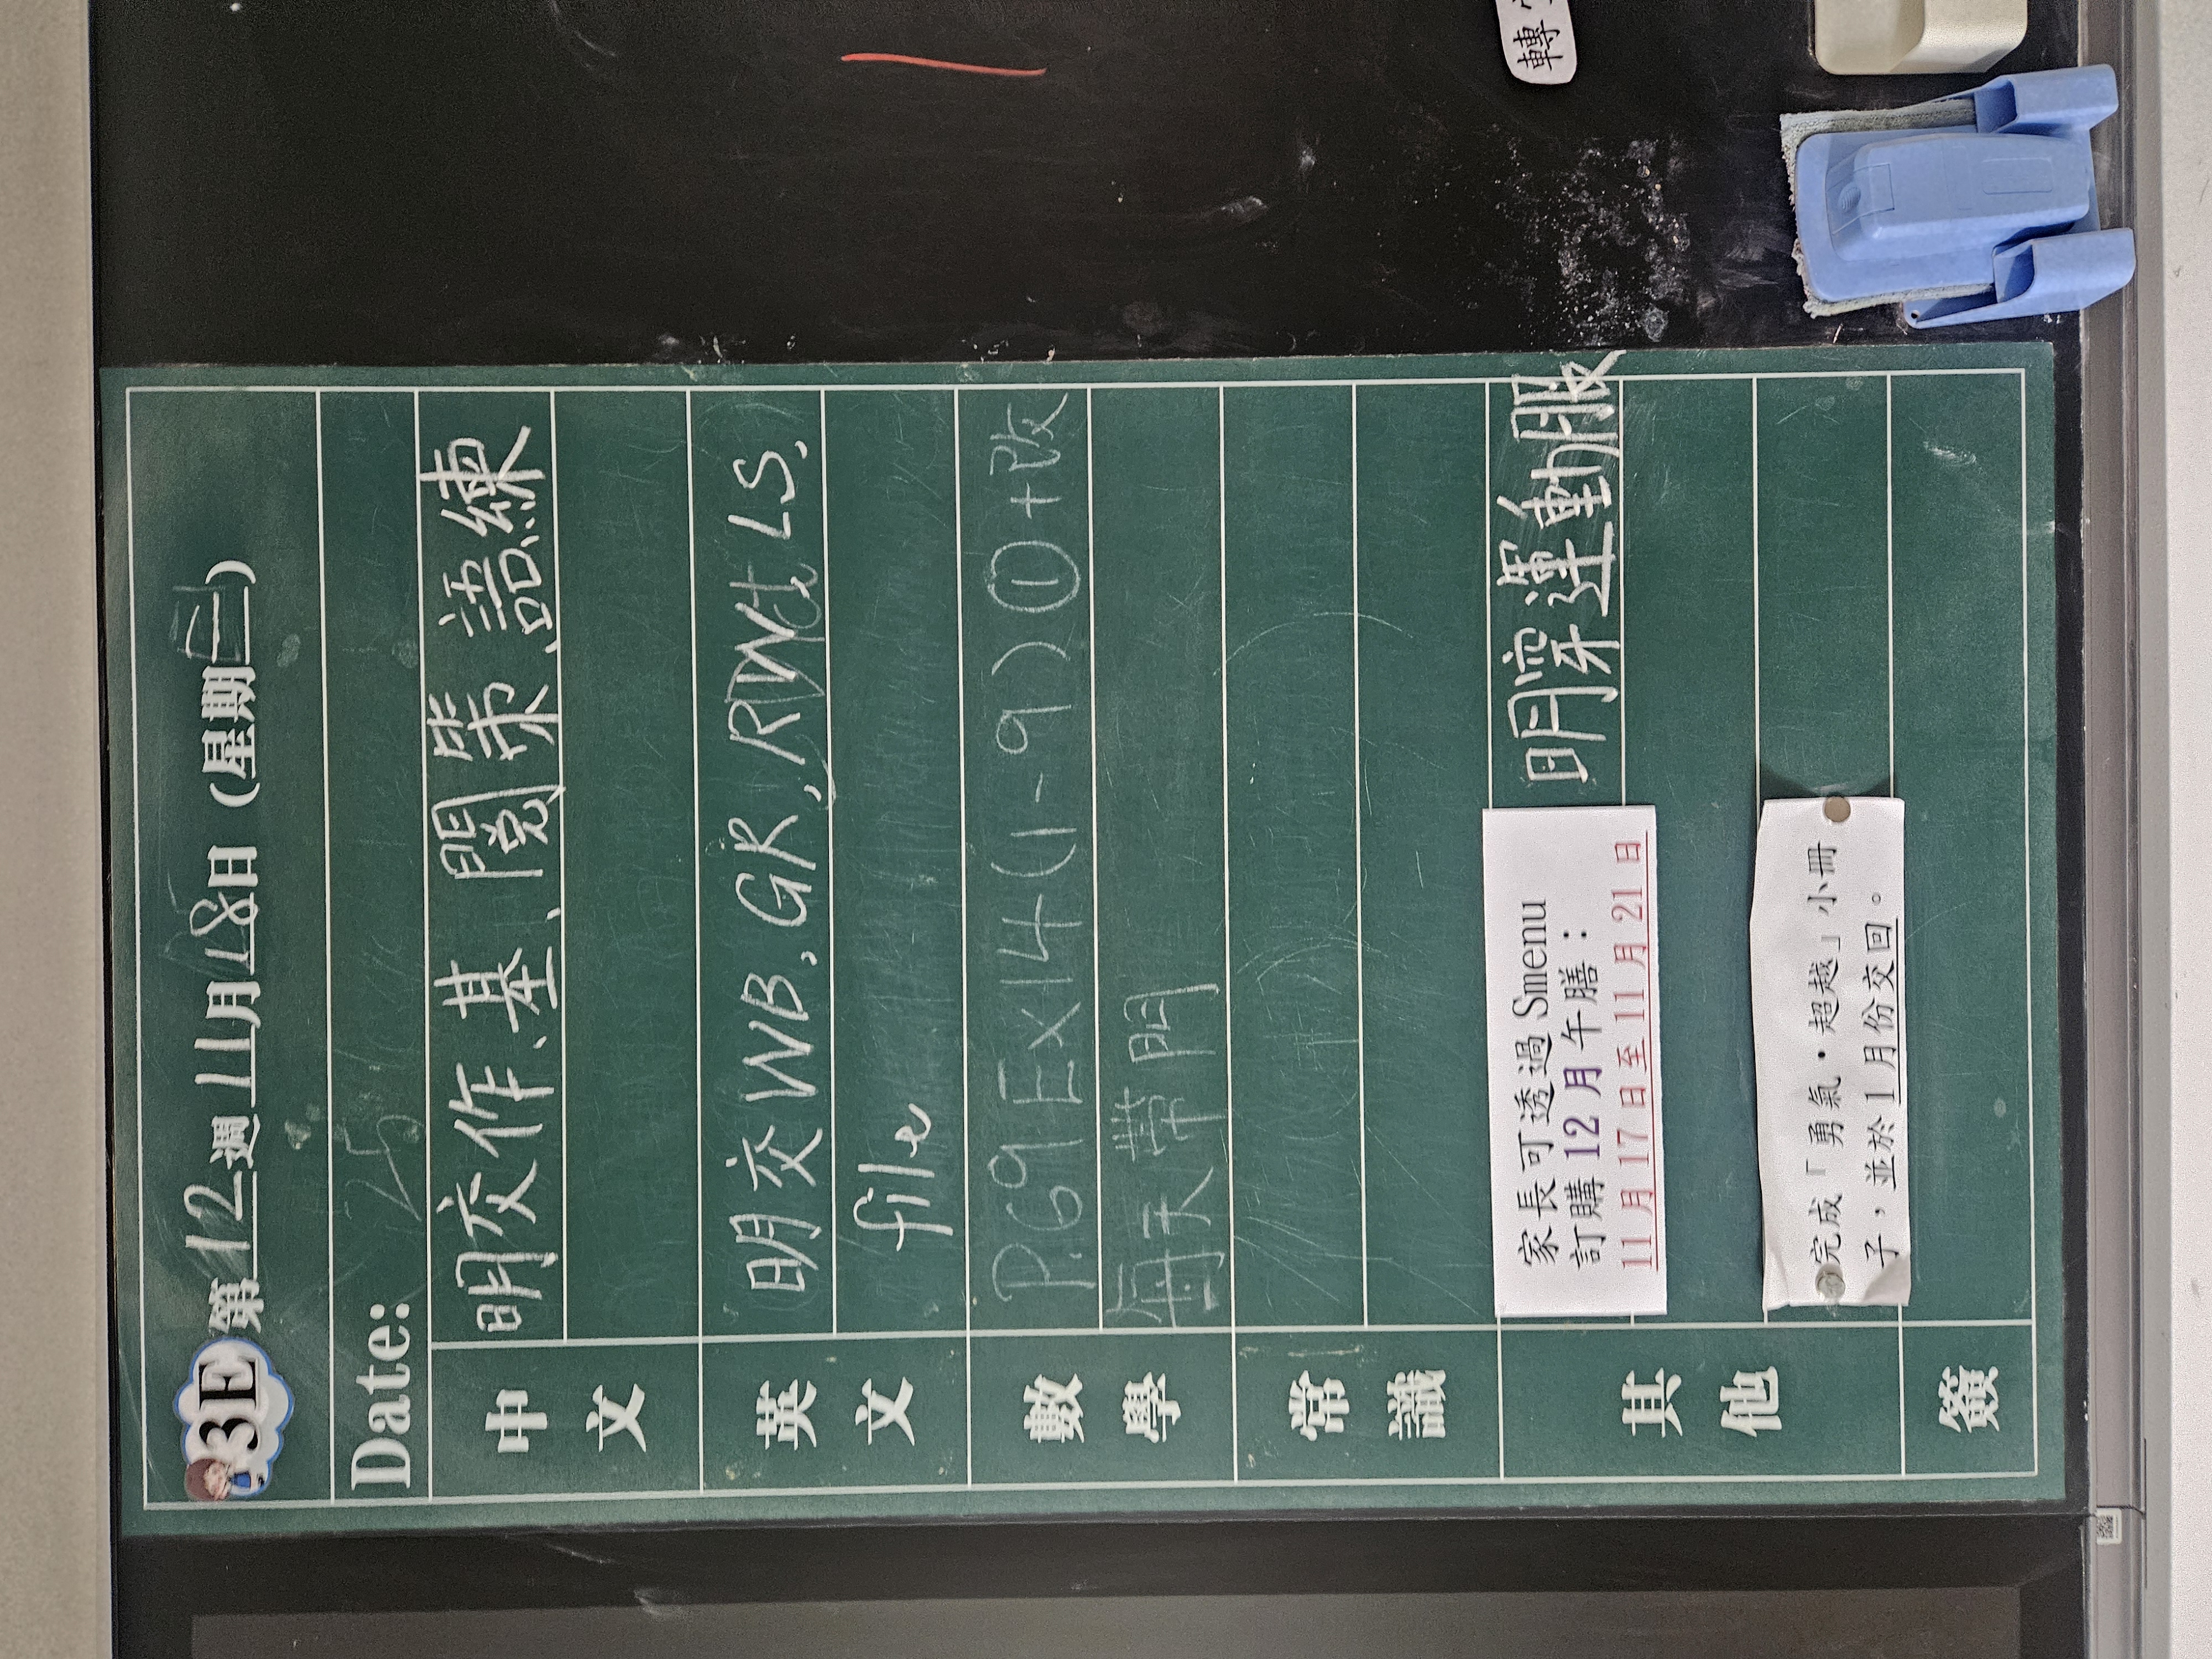 3E 第12週11月18日(星期二)
Date: 25
中文
明交作、基、閱策、語練
英文
明交WB, GR, RWtu LS,
file
數學
P.69 Ex14 (1-9) ① + Bk
每天帶間
常識
其他
明穿運動服
家長可透過 Smenu
訂購 12 月午膳:
11 月 17 日至 11 月 21 日
完成「勇氣·超越」小冊
子,並於 1 月份交回。
簽
轉